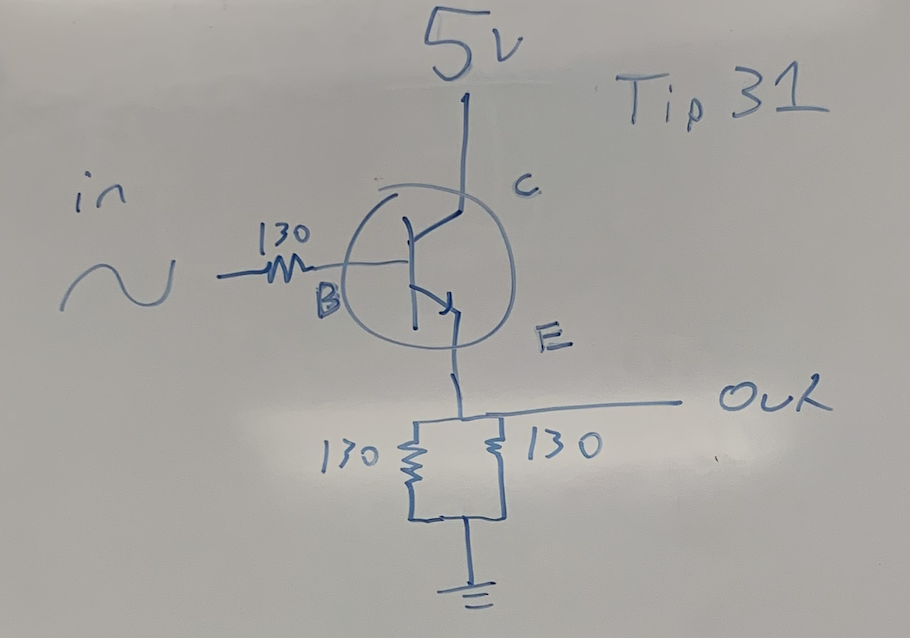 5v
Tip 31
in
C
130
B
E
Out
130
130